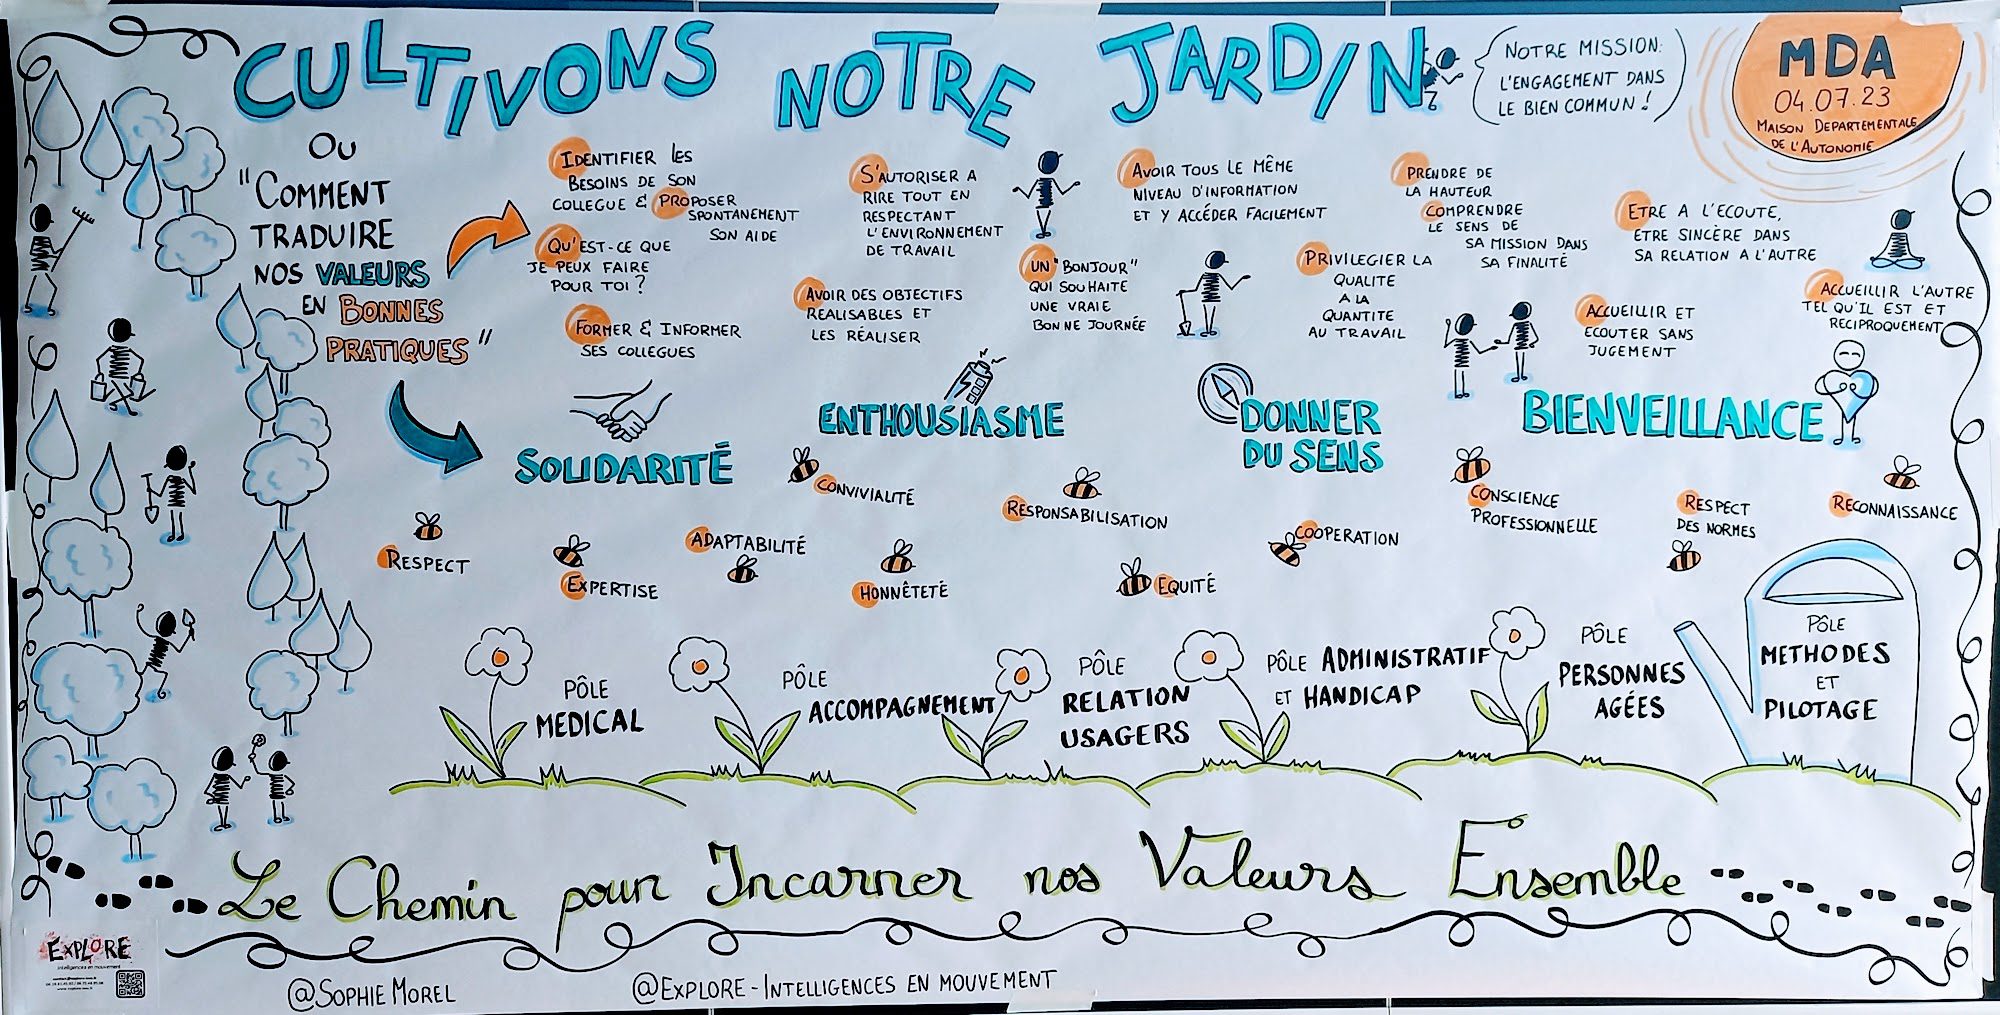 CULTIVONS NOTRE JARDIN
NOTRE MISSION:
L'ENGAGEMENT DANS
LE BIEN COMMUN !
MDA
04.07.23
MAISON DEPARTEMENTALE
DE L'AUTONOMIE
OU
"COMMENT
TRADUIRE
NOS VALEURS
EN BONNES
PRATIQUES"
IDENTIFIER LES
BESOINS DE SON
COLLEGUE & PROPOSER
SPONTANEMENT
SON AIDE
QU'EST-CE QUE
JE PEUX FAIRE
POUR TOI ?
FORMER & INFORMER
SES COLLEGUES
S'AUTORISER A
RIRE TOUT EN
RESPECTANT
L'ENVIRONNEMENT
DE TRAVAIL
AVOIR DES OBJECTIFS
REALISABLES ET
LES RÉALISER
UN "BONJOUR"
QUI SOUHAITE
UNE VRAIE
BONNE JOURNÉE
AVOIR TOUS LE MÊME
NIVEAU D'INFORMATION
ET Y ACCÉDER FACILEMENT
PRIVILEGIER LA
QUALITE
A LA
QUANTITE
AU TRAVAIL
PRENDRE DE
LA HAUTEUR
COMPRENDRE
LE SENS DE
SA MISSION DANS
SA FINALITÉ
ETRE A L'ECOUTE,
ETRE SINCÈRE DANS
SA RELATION A L'AUTRE
ACCUEILLIR ET
ECOUTER SANS
JUGEMENT
ACCUEILLIR L'AUTRE
TEL QU'IL EST ET
RECIPROQUEMENT
SOLIDARITÉ
ENTHOUSIASME
DONNER
DU SENS
BIENVEILLANCE
RESPECT
EXPERTISE
ADAPTABILITÉ
CONVIVIALITÉ
HONNÊTETÉ
RESPONSABILISATION
EQUITÉ
COOPERATION
CONSCIENCE
PROFESSIONNELLE
RESPECT
DES NORMES
RECONNAISSANCE
PÔLE
MEDICAL
PÔLE
ACCOMPAGNEMENT
PÔLE
RELATION
USAGERS
PÔLE ADMINISTRATIF
ET HANDICAP
PÔLE
PERSONNES
AGÉES
PÔLE
METHODES
ET
PILOTAGE
Le Chemin pour Incarner nos Valeurs Ensemble
EXPLORE
intelligences en mouvement
@SOPHIE MOREL
@EXPLORE - INTELLIGENCES EN MOUVEMENT